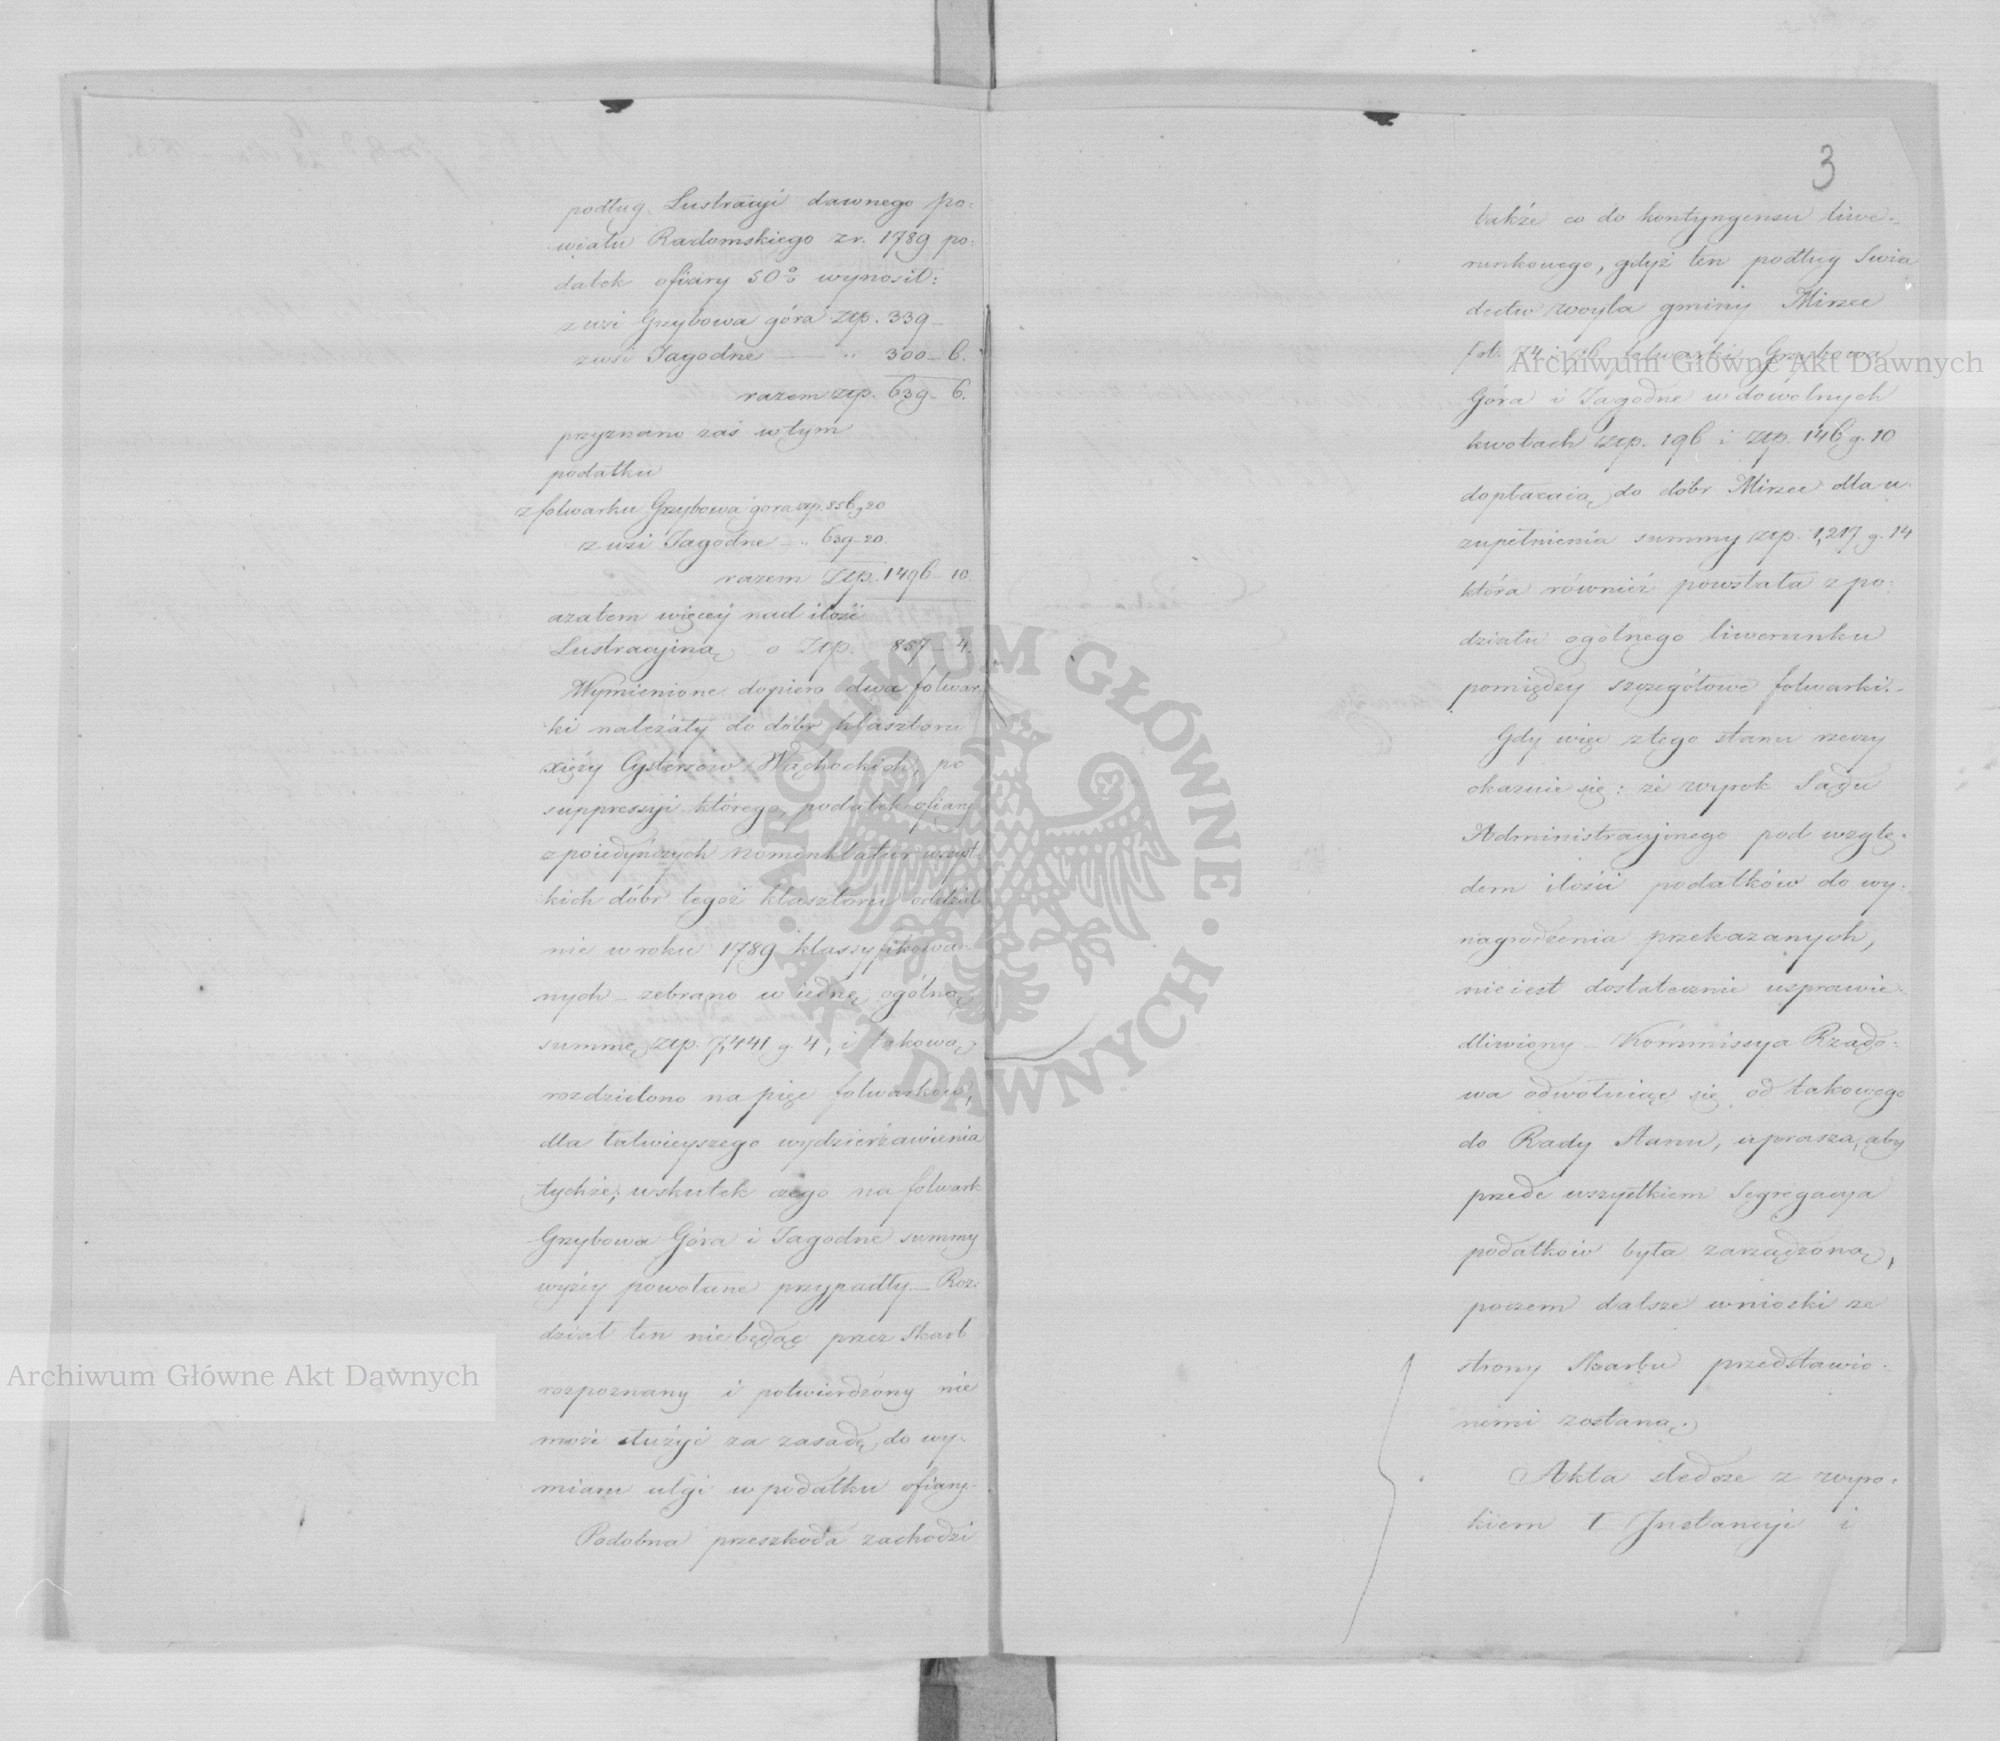 podług Lustracyi dawnego po=
wiatu Radomskiego z r. 1789 po=
datek ofiary 50% wynosił:
z wsi Grzybowa góra Złp. 339 —
z wsi Jagodne — „ 300 — 6.
razem złp. 639 — 6.
przyznano zaś w tym
podatku
z folwarku Grzybowa gora złp. 856 g 20
z wsi Jagodne — „ 639 — 20.
razem Złp. 1496 — 10.
azatem więcey nad ilość
Lustracyjną o Złp. 857 — 4.
Wymienione dopiero dwa folwar=
ki należały do dóbr klasztoru
xięży Cystersów Wąchockich, po
suppressyi którego, podatek ofiary
z poiedyńczych nomenklatur wszyst=
kich dóbr tegoż klasztoru oddziel=
nie w roku 1789 klassyfikowa=
nych — zebrano w iednę ogólną
summę złp. 7,441 g. 4, i takową
rozdzielono na pięć folwarków,
dla łatwieyszego wydzierżawienia
tychże; wskutek czego na folwark
Grzybowa Góra i Jagodne summy
wyżey powołane przypadły — Roz=
dział ten nie będąc przez Skarb
rozpoznany i potwierdzony nie
może służyć za zasadę do wy=
miaru ulgi w podatku ofiary —
Podobna przeszkoda zachodzi
3
także co do kontyngensu liwe=
runkowego, gdyż ten podług świa
dectw Woyta gminy Mirzec
fol. 74 i 76 folwarki Grzybowa
Góra i Jagodne w dowolnych
kwotach złp. 196 i złp. 146 g. 10
dopłacaią do dóbr Mirzec dla u=
zupełnienia summy złp. 1,217 g. 14
która również powstała z po=
działu ogólnego liwerunku
pomiędzy szczegółowe folwarki. —
Gdy więc z tego stanu rzeczy
okazuie się: że wyrok Sądu
Administracyjnego pod wzglę=
dem ilości podatków do wy=
nagrodzenia przekazanych,
nie iest dostatecznie usprawie=
dliwiony — Kommissya Rządo=
wa odwołuiąc się od takowego
do Rady Stanu, uprasza, aby
przede wszystkiem Segregacya
podatków była zarządzoną,
poczem dalsze wnioski ze
strony Skarbu przedstawio=
nemi zostaną.
Akta śledcze z wyro=
kiem I Instancyi i
Archiwum Główne Akt Dawnych
Archiwum Główne Akt Dawnych
ARCHIWUM GŁÓWNE · AKT DAWNYCH ·